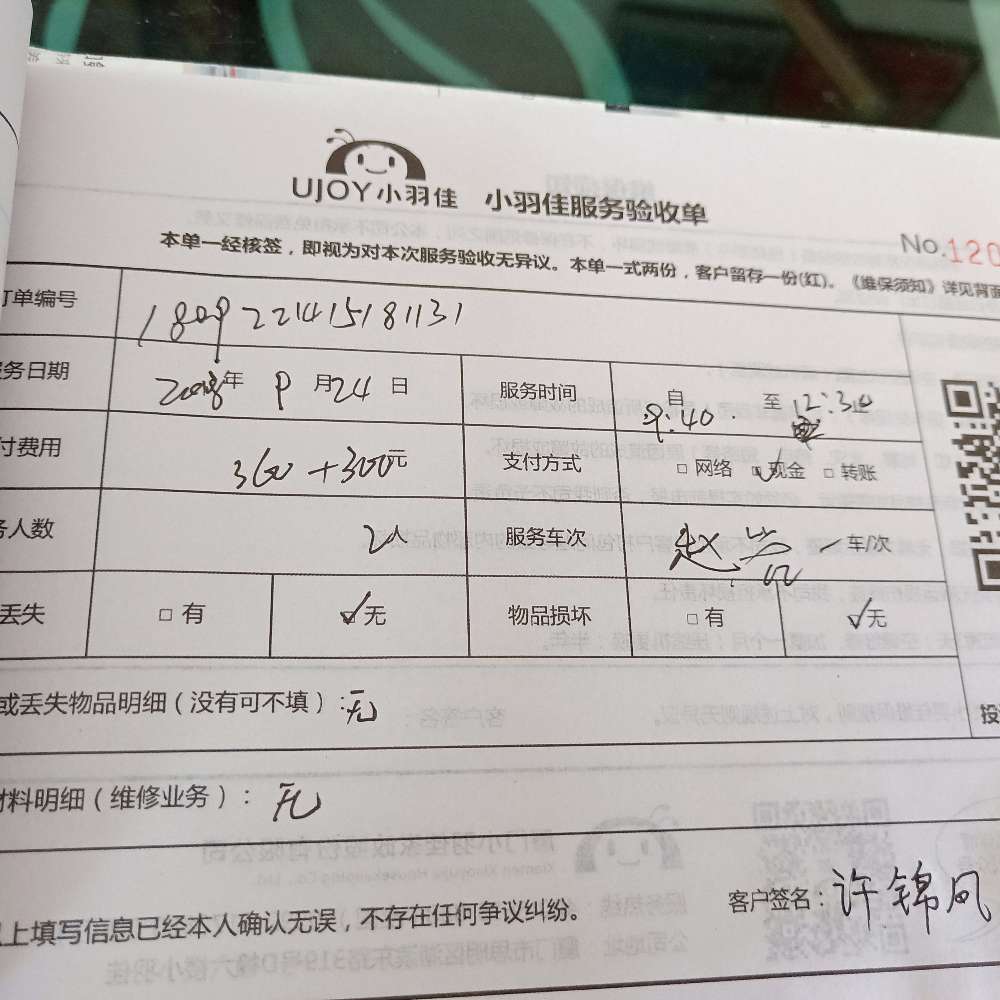 UJOY小羽佳 小羽佳服务验收单
No.120
本单一经核签，即视为对本次服务验收无异议。本单一式两份，客户留存一份(红)。《维保须知》详见背面
订单编号 1809221415181131
服务日期 2018年 9月24日 服务时间 自 9:40 至 12:30
付费用 360+300元 支付方式 □网络 ✓现金 □转账
务人数 2人 服务车次 一车/次
丢失 □有 ✓无 物品损坏 □有 ✓无
或丢失物品明细（没有可不填）:无
投
材料明细（维修业务）: 无
以上填写信息已经本人确认无误，不存在任何争议纠纷。
客户签名: 许锦凤